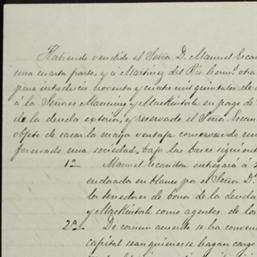 Habiendo vendido el Señor D. Manuel Escan
una cuarta parte, y a Martinez del Rio Herm.s otra
para introducir noventa y cuatro mil quintales de
á la Señores Manning y Mackintosh en pago de
de la deuda exterior, y reservado el Señor Escan
objeto de sacar la mayor ventaja conservando un
formando una sociedad bajo las bases siguient
1.a Manuel Escandon entregará á S
endosada en blanco por el Señor D
los tenedores de bonos de la deuda
y Mackintosh como agentes de los
2.a De comun acuerdo se ha conveni
capital sean quienes se hagan cargo